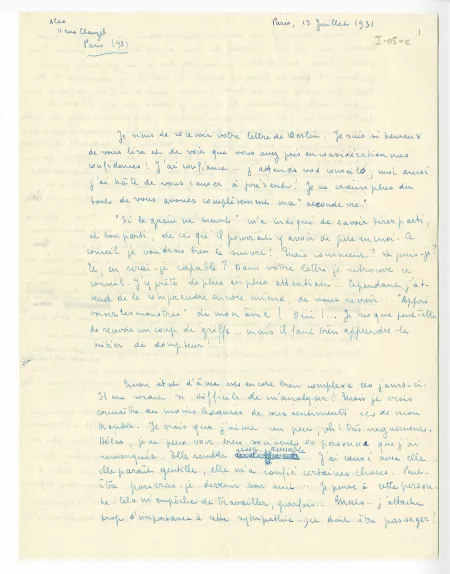 Alex
11 rue Clauzel
Paris (9e)
Paris, 13 Juillet 1931
I-05-c
1
Je viens de recevoir votre lettre de Berlin. Je suis si heureux
de vous lire et de voir que vous avez pris en considération mes
confidences ! J'ai confiance... j'attends vos conseils ; moi aussi
j'ai hâte de vous causer à présent ! Je ne crains plus du
tout de vous avouer complètement ma "seconde vie."
"Si le grain ne meurt" m'a indiqué de savoir tirer parti,
et bon parti, de ce qu'il pourrait y avoir de pire en moi. Ce
conseil je voudrais bien le suivre ! Mais comment ? Le puis-je ?
Et, en serai-je capable ? Dans votre lettre je retrouve ce
conseil. J'y prête de plus en plus attention... Cependant, j'at-
tends de le comprendre encore mieux, de vous revoir... "Appri-
voiser les monstres" de mon âme ! Oui !... Je risque peut-être
de recevoir un coup de griffe... mais il faut bien apprendre le
métier de dompteur !
Mon état d'âme est encore bien complexe ces jours-ci.
Il me serait si difficile de m'analyser ! Mais je crois
connaître au moins les causes de mes sentiments et de mon
trouble. Je crois que j'aime un peu, oh ! très vaguement.
Hélas, je ne peux voir bien souvent la personne que j'ai
remarquée. Elle semble assez aimable
J'ai causé avec elle
elle paraît gentille ; elle m'a confié certaines choses... Peut-
être pourrai-je devenir son ami... Je pense à cette person-
ne. Cela m'empêche de travailler, parfois... Mais... j'attache
trop d'importance à cette sympathie... ce doit être passager !